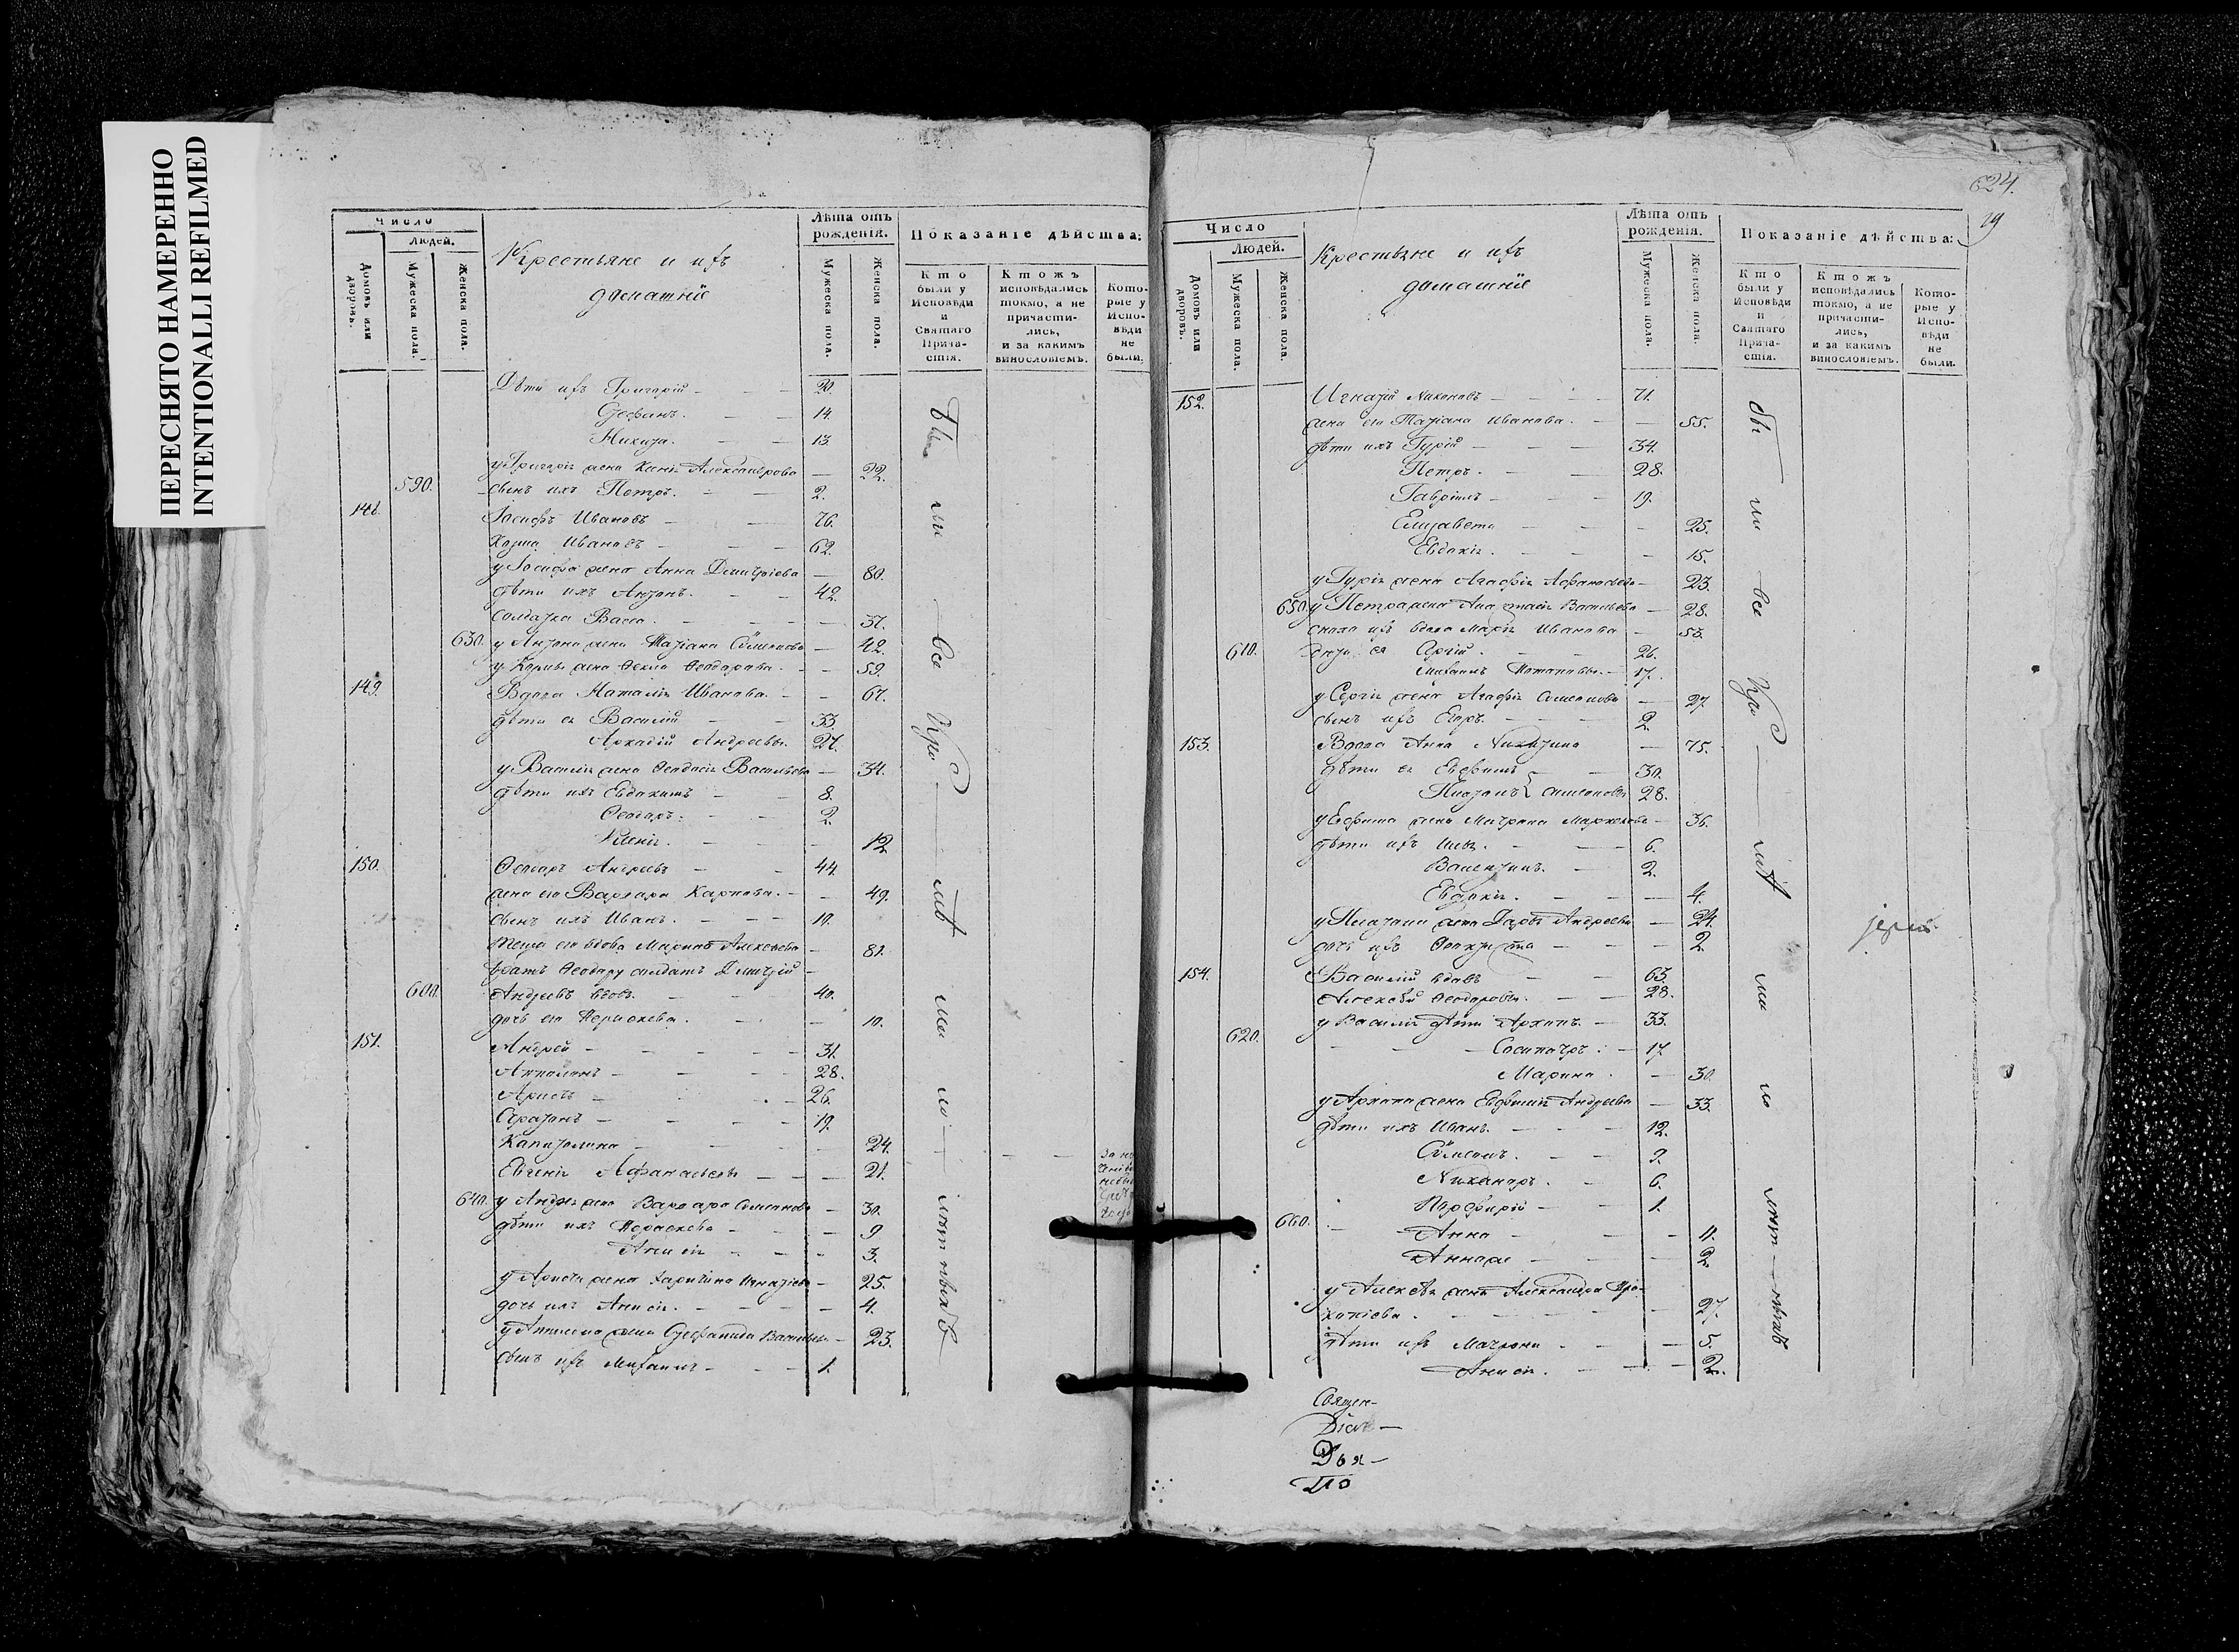 ПЕРЕСНЯТО НАМЕРЕННО
INTENTIONALLI REFILMED
Число
Людей.
Домовъ или дворовъ.
Мужеска пола.
Женска пола.
Крестьяне и ихъ
домашніе
Лѣта отъ рожденія.
Мужеска пола.
Женска пола.
Показаніе дѣйства:
Кто были у Исповѣди и Святаго Прича- стія.
Ктожъ исповѣдались токмо, а не причасти- лись, и за какимъ винословіемъ.
Кото- рые у Испо- вѣди не были.
Дѣти ихъ Григорій 20.
Стефанъ. 14.
Никита. 13
у Григорія жена Ксенія Александрова 22.
590. сынъ ихъ Петръ. 2.
148. Іосифъ Ивановъ 76.
Козма Ивановъ 62.
у Іосифа жена Анна Димитріева 80.
дѣти ихъ Антонъ. 42.
солдатка Васса. 37.
630. у Антона жена Татіана Сѵмеонова 42.
у Козмы жена Ѳекла Ѳеодорова. 59.
149. Вдова Наталія Иванова. 67.
дѣти ея Василій 33
Аркадій Андреевы. 27.
у Василія жена Ѳеодосія Васильева 34.
дѣти ихъ Евдокимъ 8.
Ѳеодоръ. 2.
Ксенія. 12
150. Ѳеодоръ Андреевъ 44.
жена его Варвара Карпова. 49.
сынъ ихъ Иванъ. 10.
теща его вдова Марина Алексеева 81.
братъ Ѳеодору солдатъ Димитрій
600. Андреевъ вдовъ. 40.
дочь его Параскева. 10.
151. Андрей 31.
Апполонъ 28.
Аристъ 26.
Стратонъ 19.
Капитолина 24.
Евгенія Афанасьевы 21.
640. у Андрея жена Варвара Симеонова 30.
дѣти ихъ Параскева 9
Анисія 3.
у Ариста жена Харитина Игнатіева 25.
дочь ихъ Анисія. 4.
у Апполона жена Стефанида Васильева 23.
сынъ ихъ Михаилъ 1.
Бы ли все При ча ма ло лѣт ныхъ
624.
19
Число
Людей.
Домовъ или дворовъ.
Мужеска пола.
Женска пола.
Крестьяне и ихъ
домашніе
Лѣта отъ рожденія.
Мужеска пола.
Женска пола.
Показаніе дѣйства:
Кто были у Исповѣди и Святаго Прича- стія.
Ктожъ исповѣдались токмо, а не причасти- лись, и за какимъ винословіемъ.
Кото- рые у Испо- вѣди не были.
152. Игнатій Никоновъ 71.
жена его Татіана Иванова. 55.
дѣти ихъ Гурій 34.
Петръ. 28.
Гавріилъ 19.
Елизавета 25.
Евдокія. 15.
у Гурія жена Агафія Афанасьева 23.
650. у Петра жена Анастасія Васильева 28.
сноха ихъ вдова Марія Иванова 53.
610. дѣти ея Сергій. 26.
Михаилъ Потаповы. 17.
у Сергія жена Агафія Симеонова 27
сынъ ихъ Егоръ. 2.
153. Вдова Анна Никитина 75.
дѣти ея Евфимъ 30.
Платонъ Симеоновы 28.
у Евфима жена Матрона Маркелова 36.
дѣти ихъ Илья. 6.
Валентинъ. 2.
Евдокія. 4.
у Платона жена Дарья Андреева 24.
дочь ихъ Ѳеоктиста 2.
154. Василій вдовъ 63.
Алексѣй Ѳеодоровы. 28.
у Василія дѣти Архипъ. 33.
620. Сосипатръ. 17
Марина. 30.
у Архипа жена Евфимія Андреева 33.
дѣти ихъ Иванъ. 12.
Сѵмеонъ. 9.
Никаноръ. 6.
Порфирій 1.
660. Анна 11.
Анна ж 2.
у Алексѣя жена Александра Про-
копіева. 27.
дѣти ихъ Матрона. 5.
Анисія. 2.
бы ли все При ма ло лѣт ныхъ
іерей
Священ-
Діа
Дья-
По